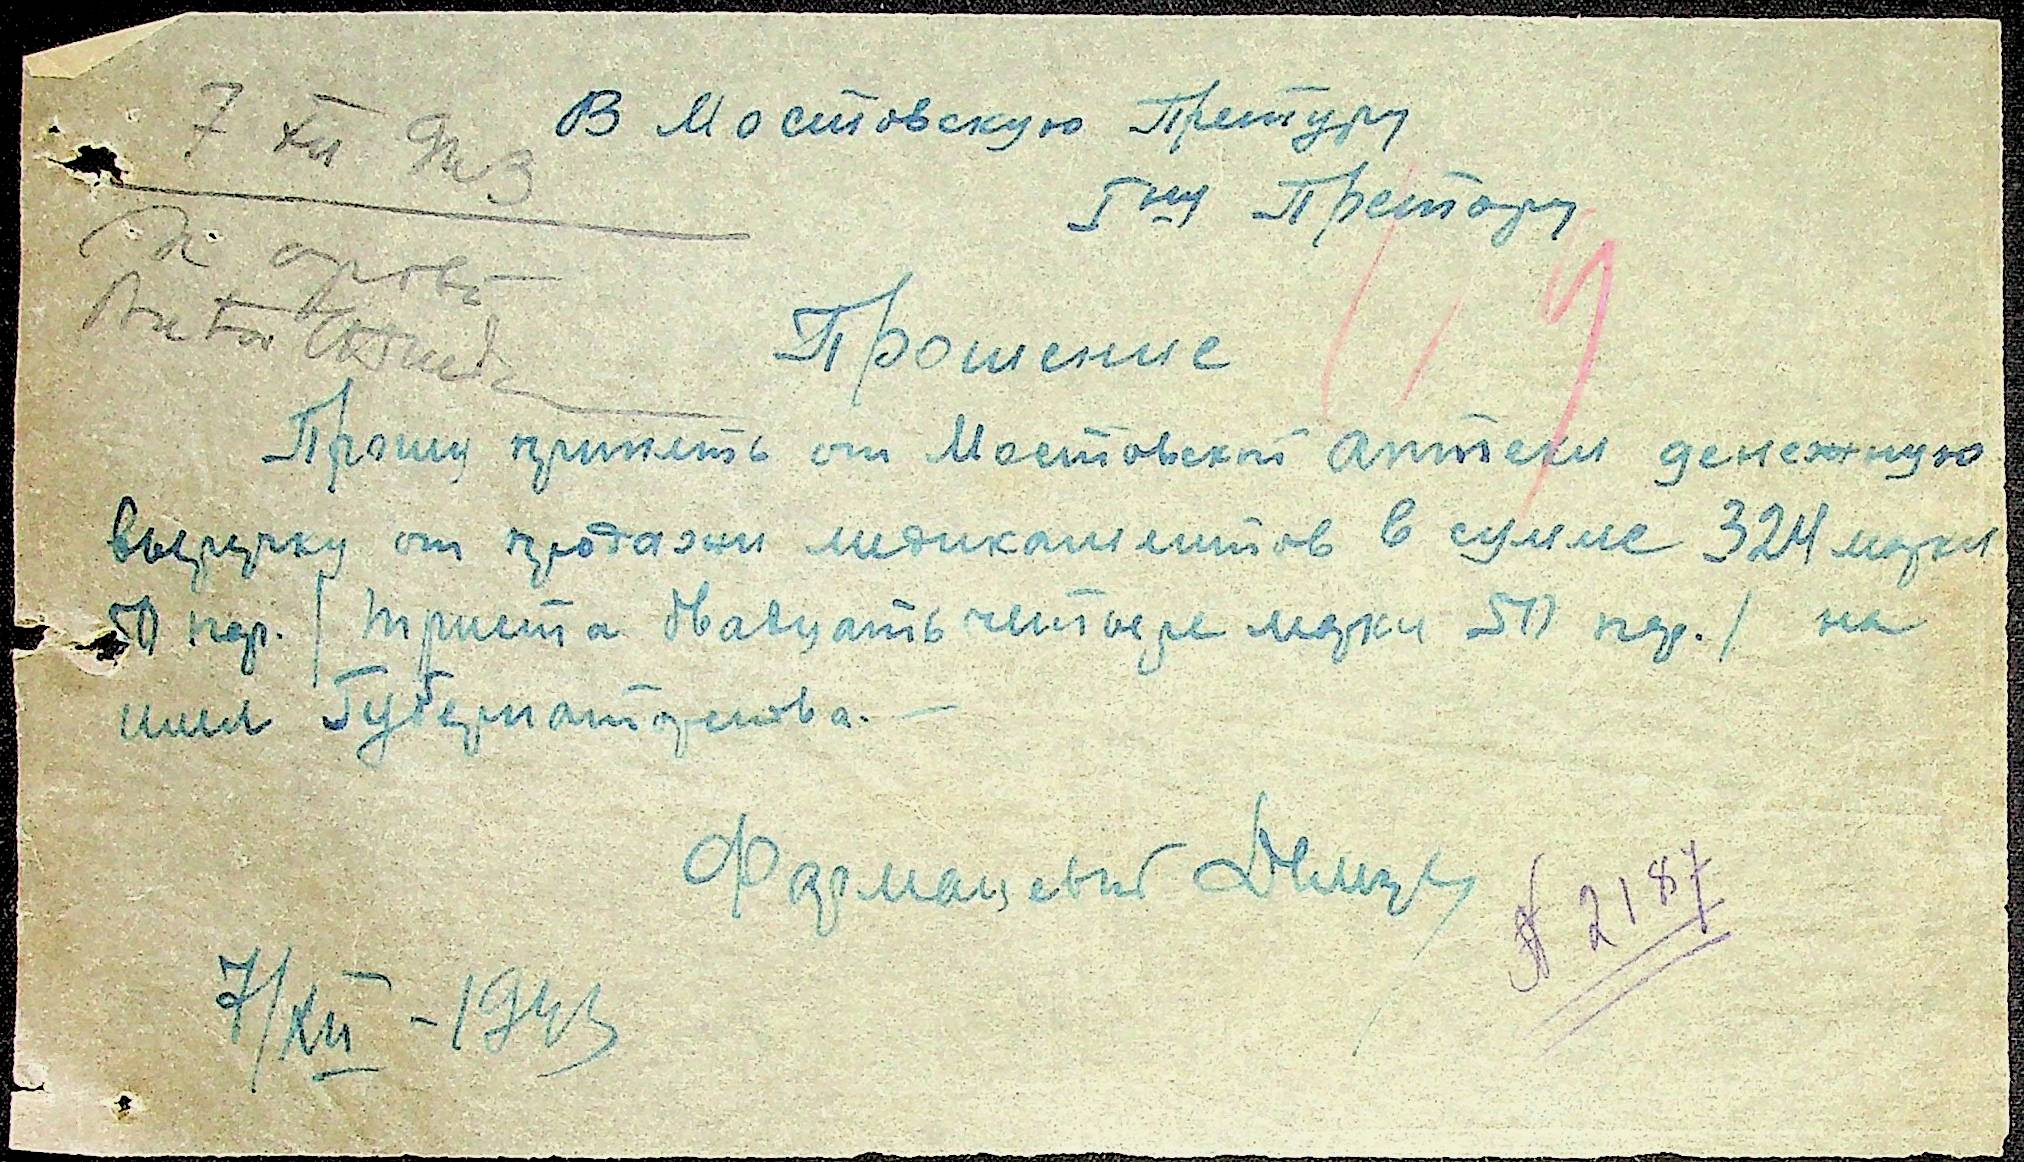 В Мостовскую Претуру
Гну Претору
7 XII 943
Прошение
Прошу принять от Мостовской аптеки денежную
выручку от продажи медикаментов в сумме 324 марки
50 пф. / триста двадцать четыре марки 50 пф. / на
имя Губернаторства. —
Фармацевт
№ 2187
7/XII - 1943